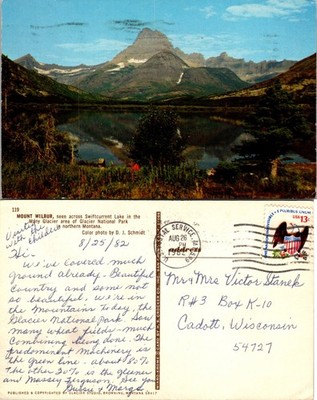 119
MOUNT WILBUR, seen across Swiftcurrent Lake in the
Many Glacier area of Glacier National Park
northern Montana.
Color photo by O. J. Schmidt
with the
children
8/25/82
Hi-
We've covered much
ground already - Beautiful
Country and some not
so beautiful, we're in
the Mountains today, the
Glacier National Park. Saw
many wheat fields - much
Combining being done. The
predominant machinery is
the Green line - about 80%
The other 20% is the gleaner
and Massey Ferguson. See you
& Marge
PUBLISHED & COPYRIGHTED BY GLACIER STUDIO, BROWNING, MONTANA 59417
POSTAL SERVICE
AUG 26
PM
1982
address
E PLURIBUS UNUM
USA
13c
Mr & Mrs Victor Stanek
R#3 Box K-10
Cadott, Wisconsin
54727